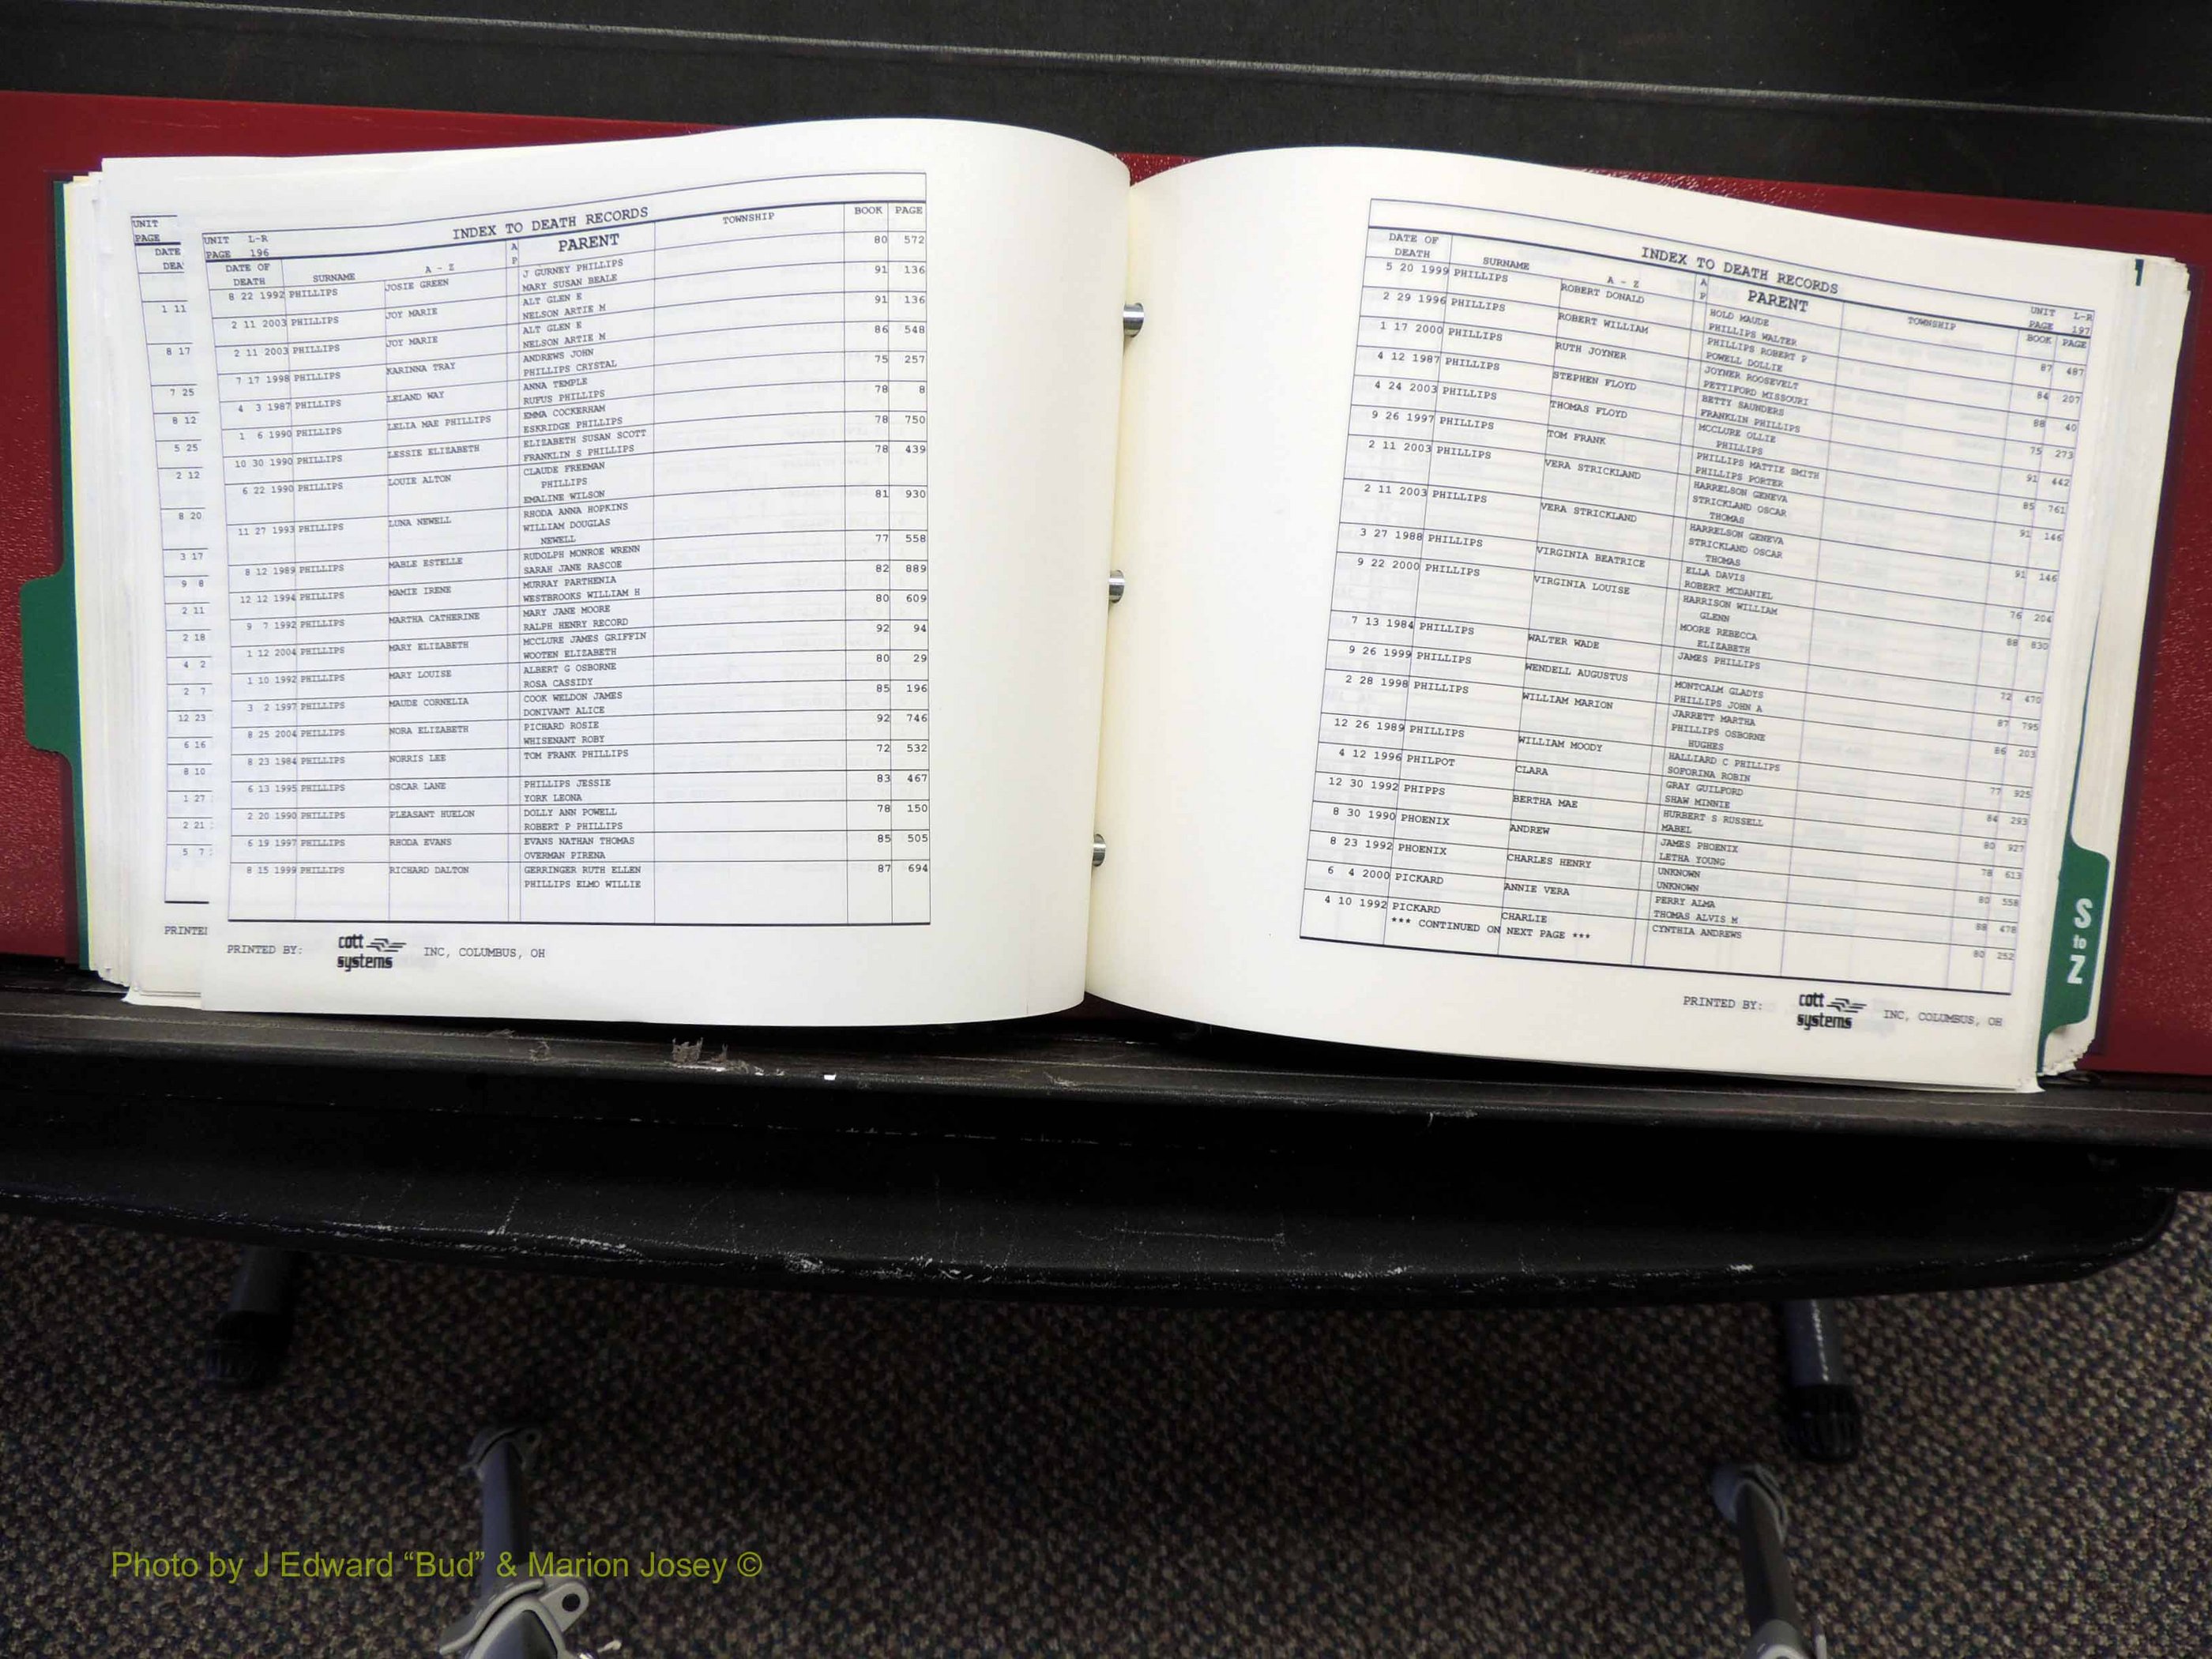 UNIT
PAGE
DATE
DEA
1 11
8 17
7 25
8 12
5 25
2 12
8 20
3 17
9 8
2 11
2 18
4 2
2 7
12 23
6 16
8 10
1 27
2 21
5 7
PRINTE
UNIT L-R INDEX TO DEATH RECORDS TOWNSHIP BOOK PAGE
PAGE 196 A P PARENT
DATE OF DEATH SURNAME A - Z
8 22 1992 PHILLIPS JOSIE GREEN J GURNEY PHILLIPS 80 572
MARY SUSAN BEALE
2 11 2003 PHILLIPS JOY MARIE ALT GLEN E 91 136
NELSON ARTIE M
2 11 2003 PHILLIPS JOY MARIE ALT GLEN E 91 136
NELSON ARTIE M
7 17 1998 PHILLIPS KARINNA TRAY ANDREWS JOHN 86 548
PHILLIPS CRYSTAL
4 3 1987 PHILLIPS LELAND WAY ANNA TEMPLE 75 257
RUFUS PHILLIPS
1 6 1990 PHILLIPS LELIA MAE PHILLIPS EMMA COCKERHAM 78 8
ESKRIDGE PHILLIPS
10 30 1990 PHILLIPS LESSIE ELIZABETH ELIZABETH SUSAN SCOTT 78 750
FRANKLIN S PHILLIPS
6 22 1990 PHILLIPS LOUIE ALTON CLAUDE FREEMAN 78 439
PHILLIPS
EMALINE WILSON
11 27 1993 PHILLIPS LUNA NEWELL RHODA ANNA HOPKINS 81 930
WILLIAM DOUGLAS
NEWELL
8 12 1989 PHILLIPS MABLE ESTELLE RUDOLPH MONROE WRENN 77 558
SARAH JANE RASCOE
12 12 1994 PHILLIPS MAMIE IRENE MURRAY PARTHENIA 82 889
WESTBROOKS WILLIAM H
9 7 1992 PHILLIPS MARTHA CATHERINE MARY JANE MOORE 80 609
RALPH HENRY RECORD
1 12 2004 PHILLIPS MARY ELIZABETH MCCLURE JAMES GRIFFIN 92 94
WOOTEN ELIZABETH
1 10 1992 PHILLIPS MARY LOUISE ALBERT G OSBORNE 80 29
ROSA CASSIDY
3 2 1997 PHILLIPS MAUDE CORNELIA COOK WELDON JAMES 85 196
DONIVANT ALICE
8 25 2004 PHILLIPS NORA ELIZABETH PICHARD ROSIE 92 746
WHISENANT ROBY
8 23 1984 PHILLIPS NORRIS LEE TOM FRANK PHILLIPS 72 532
6 13 1995 PHILLIPS OSCAR LANE PHILLIPS JESSIE 83 467
YORK LEONA
2 20 1990 PHILLIPS PLEASANT HUELON DOLLY ANN POWELL 78 150
ROBERT P PHILLIPS
6 19 1997 PHILLIPS RHODA EVANS EVANS NATHAN THOMAS 85 505
OVERMAN PIRENA
8 15 1999 PHILLIPS RICHARD DALTON GERRINGER RUTH ELLEN 87 694
PHILLIPS ELMO WILLIE
PRINTED BY: cott systems INC, COLUMBUS, OH
INDEX TO DEATH RECORDS UNIT L-R
PAGE 197
DATE OF DEATH SURNAME A - Z A P PARENT TOWNSHIP BOOK PAGE
5 20 1999 PHILLIPS ROBERT DONALD HOLD MAUDE 87 487
PHILLIPS WALTER
2 29 1996 PHILLIPS ROBERT WILLIAM PHILLIPS ROBERT P 84 207
POWELL DOLLIE
1 17 2000 PHILLIPS RUTH JOYNER JOYNER ROOSEVELT 88 40
PETTIFORD MISSOURI
4 12 1987 PHILLIPS STEPHEN FLOYD BETTY SAUNDERS 75 273
FRANKLIN PHILLIPS
4 24 2003 PHILLIPS THOMAS FLOYD MCCLURE OLLIE 91 442
PHILLIPS
9 26 1997 PHILLIPS TOM FRANK PHILLIPS MATTIE SMITH 85 761
PHILLIPS PORTER
2 11 2003 PHILLIPS VERA STRICKLAND HARRELSON GENEVA 91 146
STRICKLAND OSCAR
THOMAS
2 11 2003 PHILLIPS VERA STRICKLAND HARRELSON GENEVA 91 146
STRICKLAND OSCAR
THOMAS
3 27 1988 PHILLIPS VIRGINIA BEATRICE ELLA DAVIS 76 204
ROBERT MCDANIEL
9 22 2000 PHILLIPS VIRGINIA LOUISE HARRISON WILLIAM 88 830
GLENN
MOORE REBECCA
ELIZABETH
7 13 1984 PHILLIPS WALTER WADE JAMES PHILLIPS 72 470
9 26 1999 PHILLIPS WENDELL AUGUSTUS MONTCALM GLADYS 87 795
PHILLIPS JOHN A
2 28 1998 PHILLIPS WILLIAM MARION JARRETT MARTHA 86 203
PHILLIPS OSBORNE
HUGHES
12 26 1989 PHILLIPS WILLIAM MOODY HALLIARD C PHILLIPS 77 925
SOFORINA ROBIN
4 12 1996 PHILPOT CLARA GRAY GUILFORD 84 293
SHAW MINNIE
12 30 1992 PHIPPS BERTHA MAE HURBERT S RUSSELL 80 927
MABEL
8 30 1990 PHOENIX ANDREW JAMES PHOENIX 78 613
LETHA YOUNG
8 23 1992 PHOENIX CHARLES HENRY UNKNOWN 80 558
UNKNOWN
6 4 2000 PICKARD ANNIE VERA PERRY ALMA 88 478
THOMAS ALVIS M
4 10 1992 PICKARD CHARLIE CYNTHIA ANDREWS 80 252
*** CONTINUED ON NEXT PAGE ***
PRINTED BY: cott systems INC, COLUMBUS, OH
S
to
Z
Photo by J Edward “Bud” & Marion Josey ©